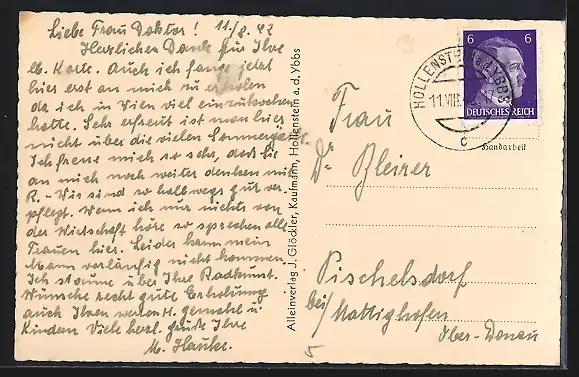 Liebe Frau Doktor! 11./8. 42
Herzlichen Dank für Ihre
lb. Karte. Auch ich fange jetzt
hier erst an mich zu erholen
da ich in Wien viel einzukochen
hatte. Sehr erfreut ist man hier
nicht über die vielen Sommergäste
Ich freue mich so sehr, daß Sie
an mich noch weiter denken mit
R. - Wir sind so halbwegs gut ver-
pflegt. Wenn ich nur nichts von
der Wirtschaft höre so sprechen alle
Frauen hier. Leider kann mein
Mann vorläufig nicht kommen
Ich staune über Ihre Radkunst.
Wünsche recht gute Erholung
auch Ihrem werten H. Gemahl u.
Kindern Viele herzl. Grüße Ihre
M. Hauke.
Alleinverlag J. Glöckler, Kaufmann, Hollenstein a. d. Ybbs
6 6
DEUTSCHES REICH
HOLLENSTEIN (YBBS)
11.VIII.
c
Handarbeit
Frau
Dr Bleirer
Pischelsdorf
bei/Mattighofen
Ober-Donau